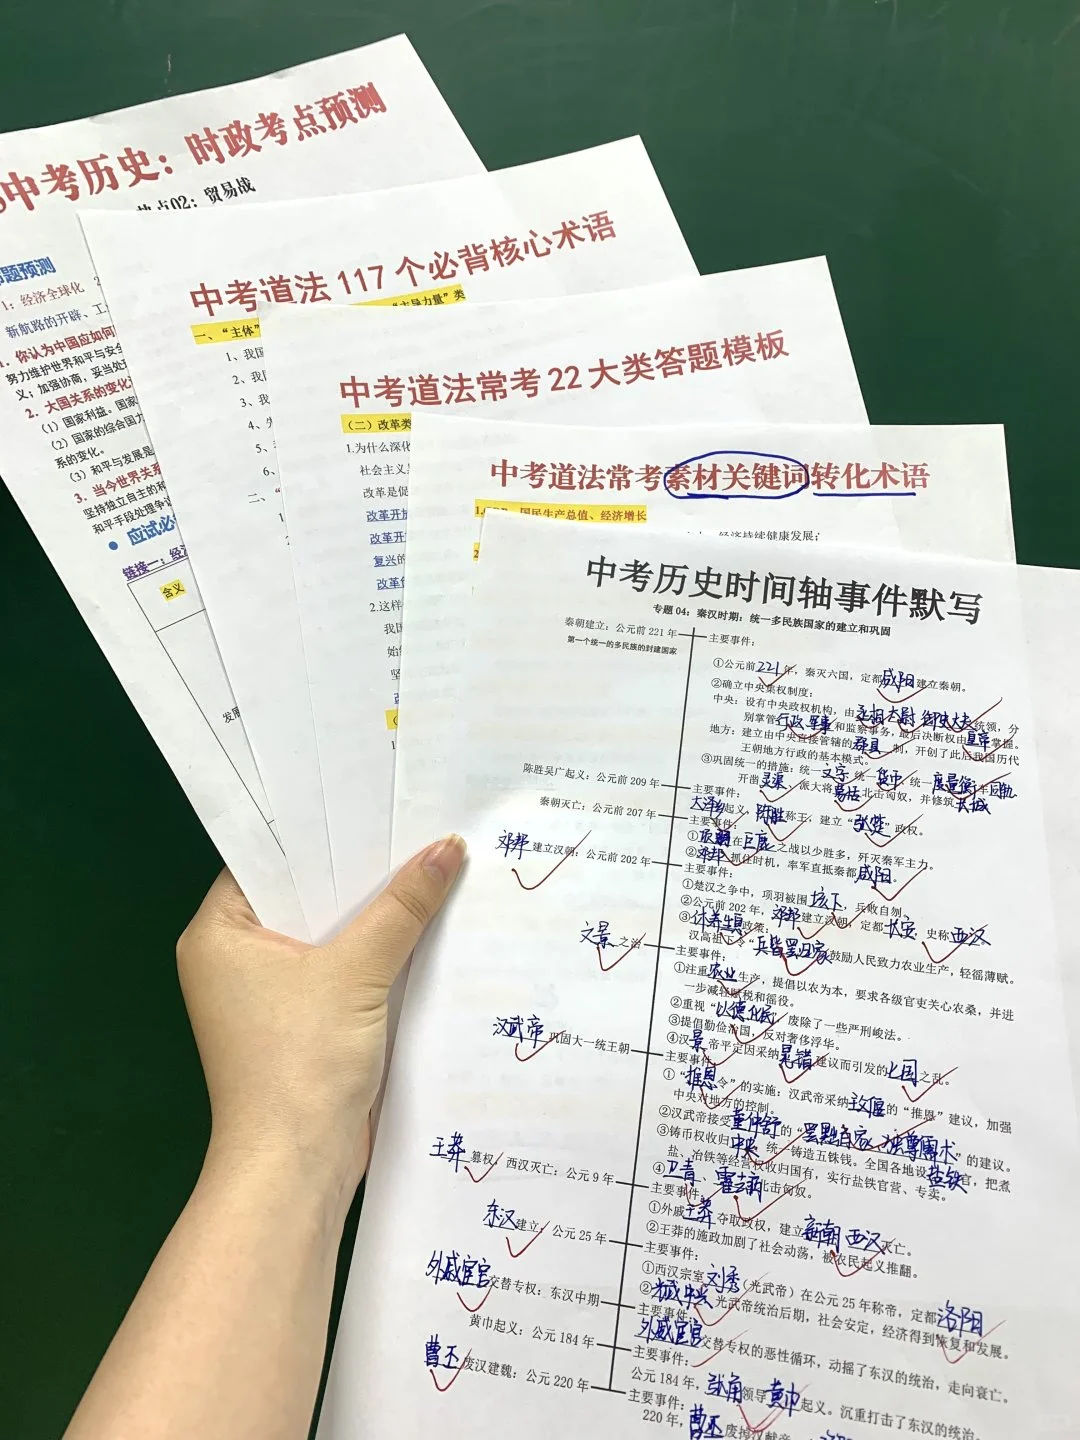 中考历史：时政考点预测
热点02：贸易战
题预测
1：经济全球化
新航路的开辟、工
1．你认为中国应如何
努力维护世界和平与安全
义；加强协商，妥当处理
2．大国关系的变化
（1）国家利益。国家
（2）国家的综合国力
系的变化。
（3）和平与发展是
3．当今世界关系
坚持独立自主的和
和平手段处理争议
应试必
链接一：经济
含义
发展
中考道法 117 个必背核心术语
一、“主体” “主导力量”类
1、我国
2、我
3、我
4、
5、
6、
二、“
1
2
中考道法常考 22 大类答题模板
（二）改革类
1.为什么深化
社会主义
改革是促
改革开放
改革开
复兴的
改革
2.这样
我国
始终
坚
中考道法常考素材关键词转化术语
国民生产总值、经济增长
经济持续健康发展；
中考历史时间轴事件默写
专题 04：秦汉时期：统一多民族国家的建立和巩固
秦朝建立：公元前 221 年
第一个统一的多民族的封建国家
主要事件：
①公元前221年，秦灭六国，定都咸阳建立秦朝。
②确立中央集权制度：
中央：设有中央政权机构，由丞相 太尉 御史大夫统领，分
别掌管行政、军事和监察事务，最后决断权由皇帝掌握。
地方：建立由中央直接管辖的郡县制，开创了此后我国历代
王朝地方行政的基本模式。
③巩固统一的措施：统一文字 统一货币 统一度量衡 车同轨
开凿灵渠、派大将蒙恬北击匈奴，并修筑长城
陈胜吴广起义：公元前 209 年
主要事件：
大泽乡起义，陈胜称王，建立“张楚”政权。
秦朝灭亡：公元前 207 年
主要事件：
①项羽在巨鹿之战以少胜多，歼灭秦军主力。
②邓邦抓住时机，率军直抵秦都咸阳。
邓邦建立汉朝：公元前 202 年
主要事件：
①楚汉之争中，项羽被围垓下，兵败自刎。
②公元前 202 年，邓邦建立汉朝，定都长安，史称西汉
③休养生息政策：
汉高祖下令“兵皆罢归家”鼓励人民致力农业生产，轻徭薄赋。
文景之治
主要事件：
①注重农业生产，提倡以农为本，要求各级官吏关心农桑，并进
一步减轻赋税和徭役。
②重视“以德化民”，废除了一些严刑峻法。
③提倡勤俭治国，反对奢侈浮华。
④汉景帝平定因采纳晁错建议而引发的七国之乱。
汉武帝巩固大一统王朝
主要事件：
①“推恩令”的实施：汉武帝采纳主父偃的“推恩”建议，加强
中央对地方的控制。
②汉武帝接受董仲舒的“罢黜百家，独尊儒术”的建议。
③铸币权收归中央，统一铸造五铢钱。全国各地设盐铁官，把煮
盐、冶铁等经营权收归国有，实行盐铁官营、专卖。
④卫青、霍去病北击匈奴。
王莽篡权，西汉灭亡：公元 9 年
主要事件：
①外戚王莽夺取政权，建立新朝 西汉灭亡。
②王莽的施政加剧了社会动荡，被农民起义推翻。
东汉建立：公元 25 年
主要事件：
①西汉宗室刘秀（光武帝）在公元 25 年称帝，定都洛阳
②光武中兴 光武帝统治后期，社会安定，经济得到恢复和发展。
外戚宦官交替专权：东汉中期
主要事件：
外戚宦官交替专权的恶性循环，动摇了东汉的统治，走向衰亡。
黄巾起义：公元 184 年
主要事件：
公元 184 年，张角领导黄巾起义。沉重打击了东汉的统治。
曹丕废汉建魏：公元 220 年
主要事件：
220 年，曹丕废掉汉献帝